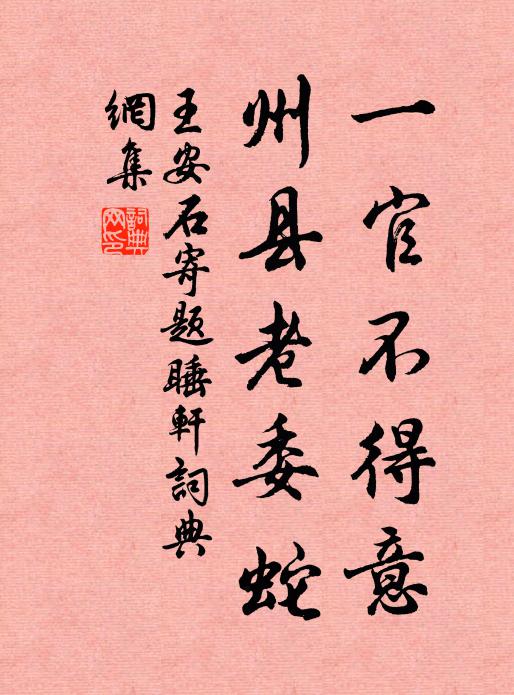 一官不得意
州县老委蛇
王安石寄题睡軒詞典
網集
詞典
网印